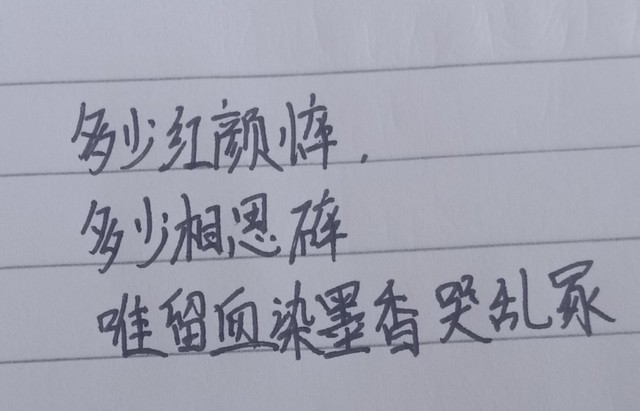 多少红颜悴，
多少相思碎
唯留血染墨香哭乱冢